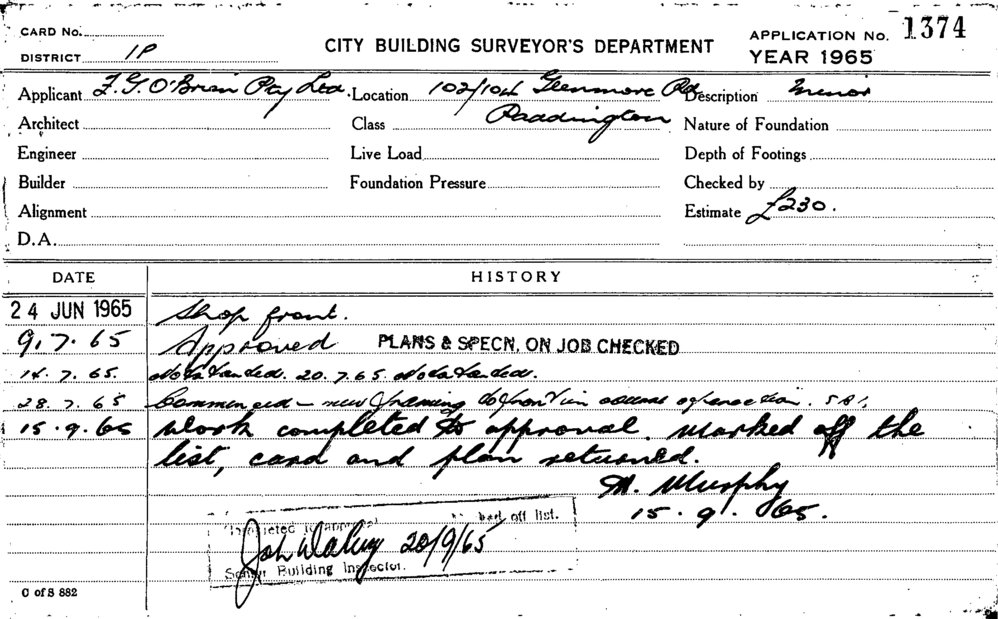 CARD No.
DISTRICT 1P
CITY BUILDING SURVEYOR'S DEPARTMENT
APPLICATION No. 1374
YEAR 1965
Applicant F. G. O'Brian Pty Ltd. Location 102/104 Glenmore Rd Description Minor
Architect Class Paddington Nature of Foundation
Engineer Live Load Depth of Footings
Builder Foundation Pressure Checked by
Alignment Estimate £230.
D.A.
DATE HISTORY
24 JUN 1965 Shop front.
9.7.65 Approved PLANS & SPECN. ON JOB CHECKED
14.7.65. Not started. 20.7.65 Not started.
28.7.65 Commenced – new framing to front in course of erection.
15.9.65 Work completed to approval. Marked off the
list, card and plan returned.
M. Murphy
15.9.65.
Completed to approval off list.
20/9/65
Senior Building Inspector.
C of S 882